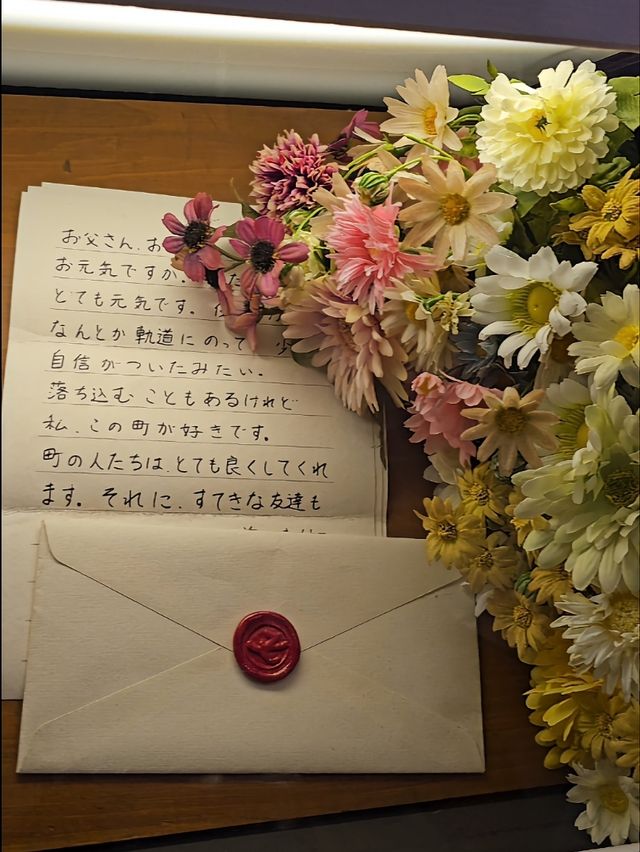 お父さん、お
お元気ですか。
とても元気です。
なんとか軌道にのって
自信がついたみたい。
落ち込むこともあるけれど
私、この町が好きです。
町の人たちは、とても良くしてくれ
ます。それに、すてきな友達も